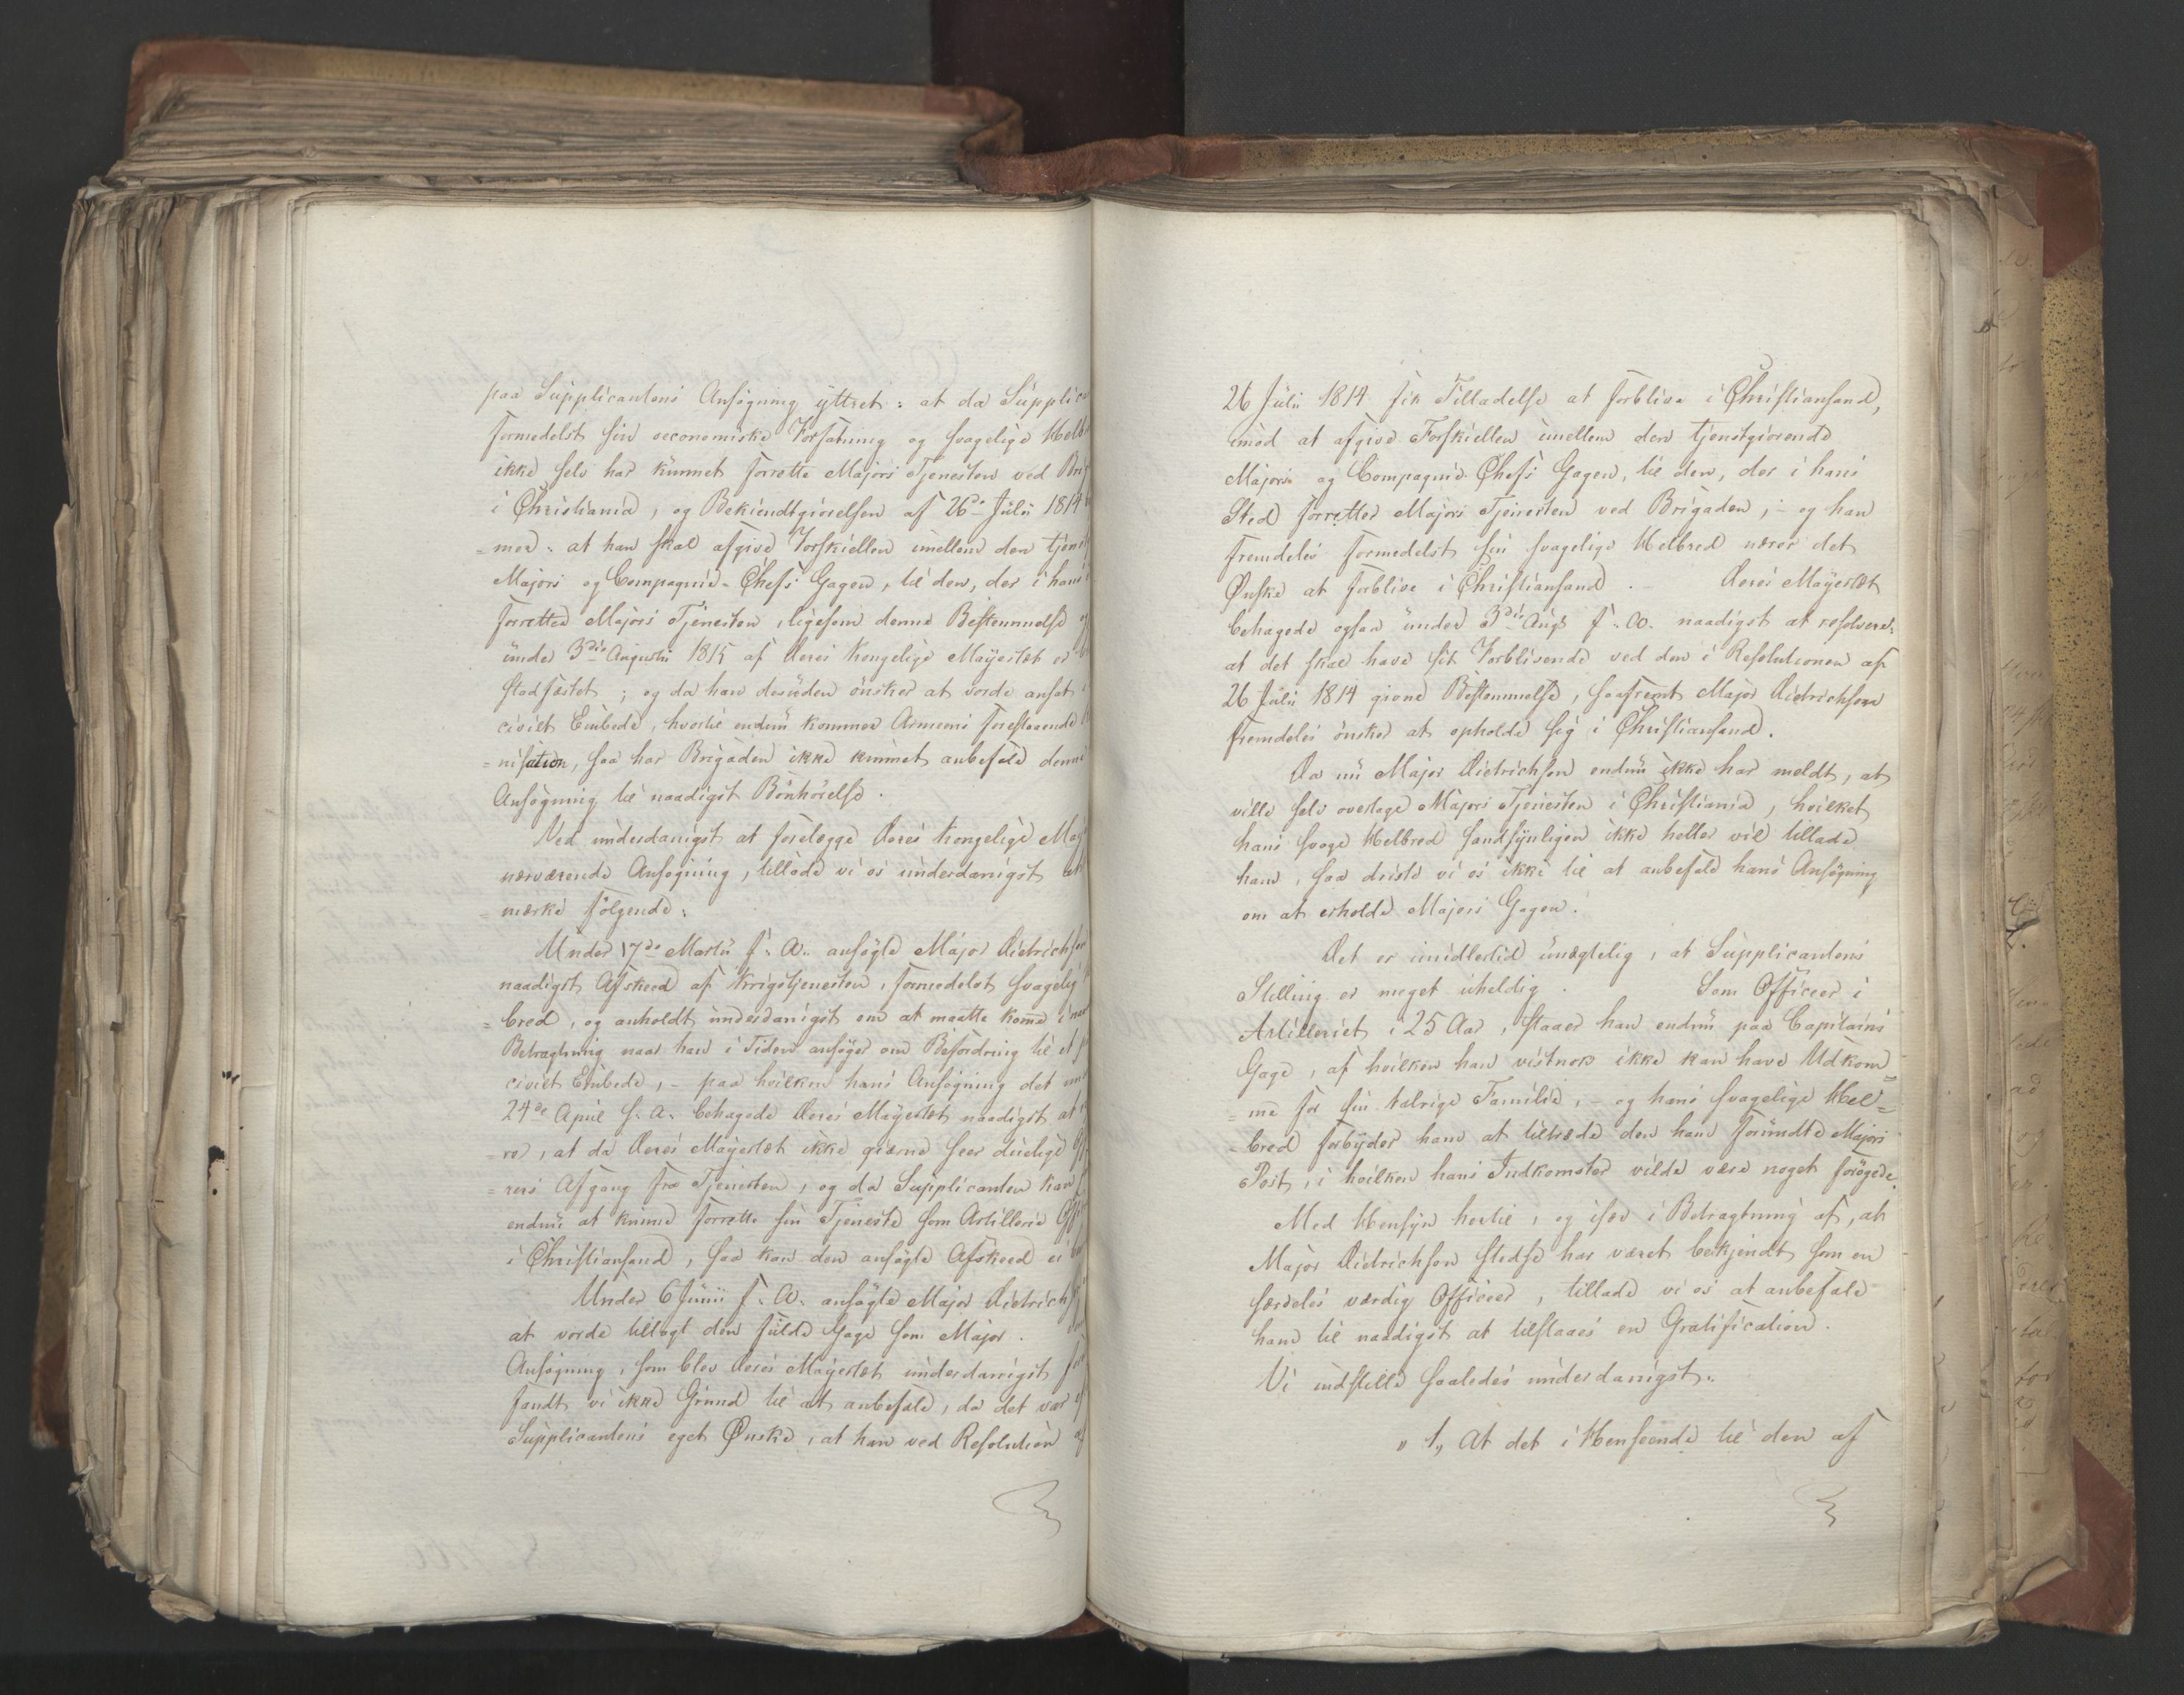 paa Supplicantens Ansøgning yttret: at da Supplic
formedelst sin oeconomiske Forfatning og svagelige Helb
ikke selv har kunnet forrette Majors Tjenesten ved Brig
i Christiania, og Bekiendtgiørelsen af 26de Julii 1814
=med: at han skal afgive Forskiellen imellem den tjenst
Majors og Compagnie-Chefs Gagen, til den, der i hans
forretter Majors Tjenesten, ligesom denne Bestemmelse
under 3die Augusti 1815 af Deres Kongelige Mayestæt er
stadfæstet; og da han desuden ønsker at vorde ansat
civilt Embede, hvortil endnu kommer Armeens forestaaende
=nisation, saa har Brigaden ikke kunnet anbefale denne
Ansøgning til naadigst Bønhørelse.
Ved underdanigst at forelægge Deres Kongelige May
nærværende Ansøgning, tillade vi os underdanigst at
mærke følgende:
Under 17de Martii f: A: ansøgte Major Dietrichson
naadigst Afskeed af Krigstjenesten, formedelst svagelig
=bred, og anholdt underdanigst om at maatte komme i
Betragtning naar han i Tiden ansøger om Befordring til et
civilt Embede, - paa hvilken hans Ansøgning det
24de April s: A: behagede Deres Mayestæt naadigst at
=re, at da Deres Mayestæt ikke gierne seer duelige
=rers Afgang fra Tjenesten, og da Supplicanten
endnu at kunne forrette sin Tjeneste som Artillerie
i Christiansand, saa kan den ansøgte Afskeed ei
Under 6 Junii f: A: ansøgte Major Dietrichs
at vorde tillagt den fulde Gage som Major.
Ansøgning, som blev Deres Mayestæt underdanigst
fandt vi ikke Grund til at anbefale, da det var
Supplicantens eget Ønske, at han ved Resolution af
26 Julii 1814 fik Tilladelse at forblive i Christiansand,
imod at afgive Forskiellen imellem den tjenstgiørende
Majors og Compagnie-Chefs Gagen, til den, der i hans
Sted forretter Majors Tjenesten ved Brigaden; - og han
fremdeles formedelst sin svagelige Helbred nærer det
Ønske at forblive i Christiansand. - Deres Mayestæt
behagede ogsaa under 3die Augs f: A: naadigst at resolvere:
at det skal have sit Forblivende ved den i Resolutionen af
26 Julii 1814 givne Bestemmelse, saafremt Major Dietrichson
fremdeles ønsker at opholde sig i Christiansand.
Da nu Major Dietrichson endnu ikke har meldt, at
ville selv overtage Majors Tjenesten i Christiania, hvilket
hans svage Helbred sandsynligen ikke heller vil tillade
ham, saa driste vi os ikke til at anbefale hans Ansøgning
om at erholde Majors Gagen.
Det er imidlertid unægtelig, at Supplicantens
Stilling er meget uheldig. Som Officeer i
Artilleriet i 25 Aar, staaer han endnu paa Capitains
Gage, af hvilken han vistnok ikke kan have Udkom=
=me for sin talrige Familie, - og hans svagelige Hel=
=bred forbyder ham at tiltræde den ham forundte Majors
Post, i hvilken hans Indkomster vilde være noget forøgede.
Med Hensyn hertil, og især i Betragtning af, at
Major Dietrichson stedse har været bekjendt som en
særdeles værdig Officeer, tillade vi os at anbefale
ham til naadigst at tilstaaes en Gratification.
Vi indstille saaledes underdanigst:
"1, At det i Henseende til den af